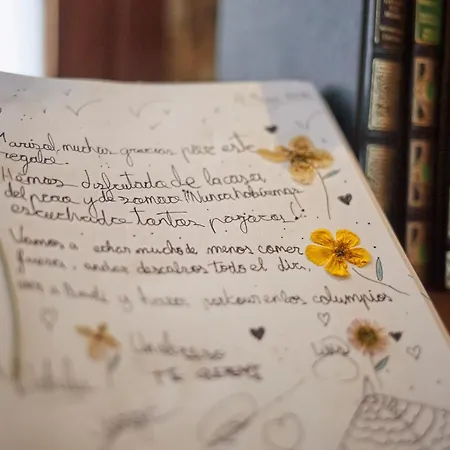 Marisol, muchas gracias por este
regalo.
Hemos disfrutado de la casa
del poao y de samoa ¡¡Nunca habíamos
escuchado tantos pajaros!
Vamos a echar mucho de menos comer
fuera, andar descalzos todo el dia,
y hacer parkour en los columpios
Un abrazo